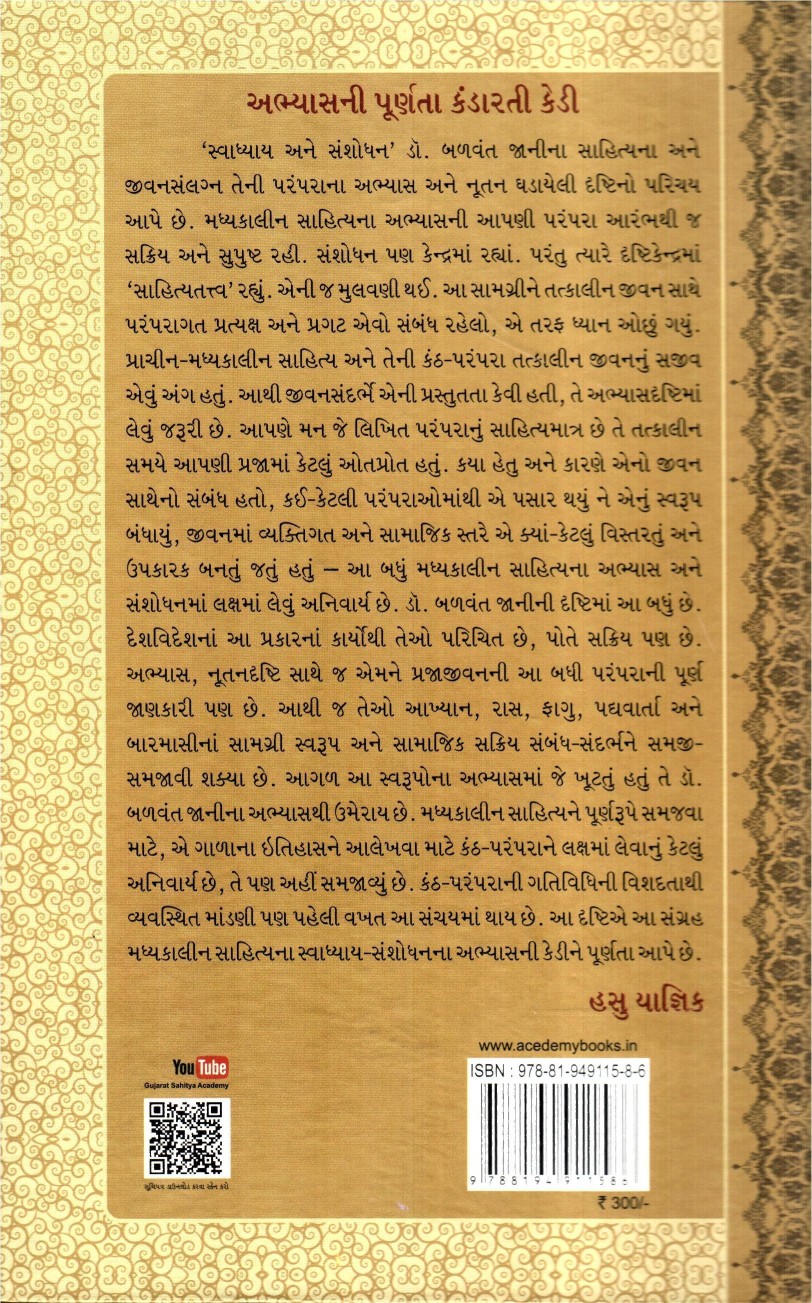 અભ્યાસની પૂર્ણતા કંડારતી કેડી
‘સ્વાધ્યાય અને સંશોધન’ ડૉ. બળવંત જાનીના સાહિત્યના અને
જીવનસંલગ્ન તેની પરંપરાના અભ્યાસ અને નૂતન ઘડાયેલી દૃષ્ટિનો પરિચય
આપે છે. મધ્યકાલીન સાહિત્યના અભ્યાસની આપણી પરંપરા આરંભથી જ
સક્રિય અને સુપુષ્ટ રહી. સંશોધન પણ કેન્દ્રમાં રહ્યાં. પરંતુ ત્યારે દૃષ્ટિકેન્દ્રમાં
‘સાહિત્યતત્ત્વ’ રહ્યું. એની જ મુલવણી થઈ. આ સામગ્રીને તત્કાલીન જીવન સાથે
પરંપરાગત પ્રત્યક્ષ અને પ્રગટ એવો સંબંધ રહેલો, એ તરફ ધ્યાન ઓછું ગયું.
પ્રાચીન-મધ્યકાલીન સાહિત્ય અને તેની કંઠ-પરંપરા તત્કાલીન જીવનનું સજીવ
એવું અંગ હતું. આથી જીવનસંદર્ભે એની પ્રસ્તુતતા કેવી હતી, તે અભ્યાસદૃષ્ટિમાં
લેવું જરૂરી છે. આપણે મન જે લિખિત પરંપરાનું સાહિત્યમાત્ર છે તે તત્કાલીન
સમયે આપણી પ્રજામાં કેટલું ઓતપ્રોત હતું. કયા હેતુ અને કારણે એનો જીવન
સાથેનો સંબંધ હતો, કઈ-કેટલી પરંપરાઓમાંથી એ પસાર થયું ને એનું સ્વરૂપ
બંધાયું, જીવનમાં વ્યક્તિગત અને સામાજિક સ્તરે એ ક્યાં-કેટલું વિસ્તરતું અને
ઉપકારક બનતું જતું હતું – આ બધું મધ્યકાલીન સાહિત્યના અભ્યાસ અને
સંશોધનમાં લક્ષમાં લેવું અનિવાર્ય છે. ડૉ. બળવંત જાનીની દૃષ્ટિમાં આ બધું છે.
દેશવિદેશનાં આ પ્રકારનાં કાર્યોથી તેઓ પરિચિત છે, પોતે સક્રિય પણ છે.
અભ્યાસ, નૂતનદૃષ્ટિ સાથે જ એમને પ્રજાજીવનની આ બધી પરંપરાની પૂર્ણ
જાણકારી પણ છે. આથી જ તેઓ આખ્યાન, રાસ, ફાગુ, પદ્યવાર્તા અને
બારમાસીનાં સામગ્રી સ્વરૂપ અને સામાજિક સક્રિય સંબંધ-સંદર્ભને સમજી-
સમજાવી શક્યા છે. આગળ આ સ્વરૂપોના અભ્યાસમાં જે ખૂટતું હતું તે ડૉ.
બળવંત જાનીના અભ્યાસથી ઉમેરાય છે. મધ્યકાલીન સાહિત્યને પૂર્ણરૂપે સમજવા
માટે, એ ગાળાના ઇતિહાસને આલેખવા માટે કંઠ-પરંપરાને લક્ષમાં લેવાનું કેટલું
અનિવાર્ય છે, તે પણ અહીં સમજાવ્યું છે. કંઠ-પરંપરાની ગતિવિધિની વિશદતાથી
વ્યવસ્થિત માંડણી પણ પહેલી વખત આ સંચયમાં થાય છે. આ દૃષ્ટિએ આ સંગ્રહ
મધ્યકાલીન સાહિત્યના સ્વાધ્યાય-સંશોધનના અભ્યાસની કેડીને પૂર્ણતા આપે છે.
હસુ યાજ્ઞિક
www.acedemybooks.in
ISBN : 978-81-949115-8-6
9 788194 911586
₹ 300/-
You Tube
Gujarat Sahitya Academy
સૂચિપત્ર ડાઉનલોડ કરવા સ્કૅન કરો